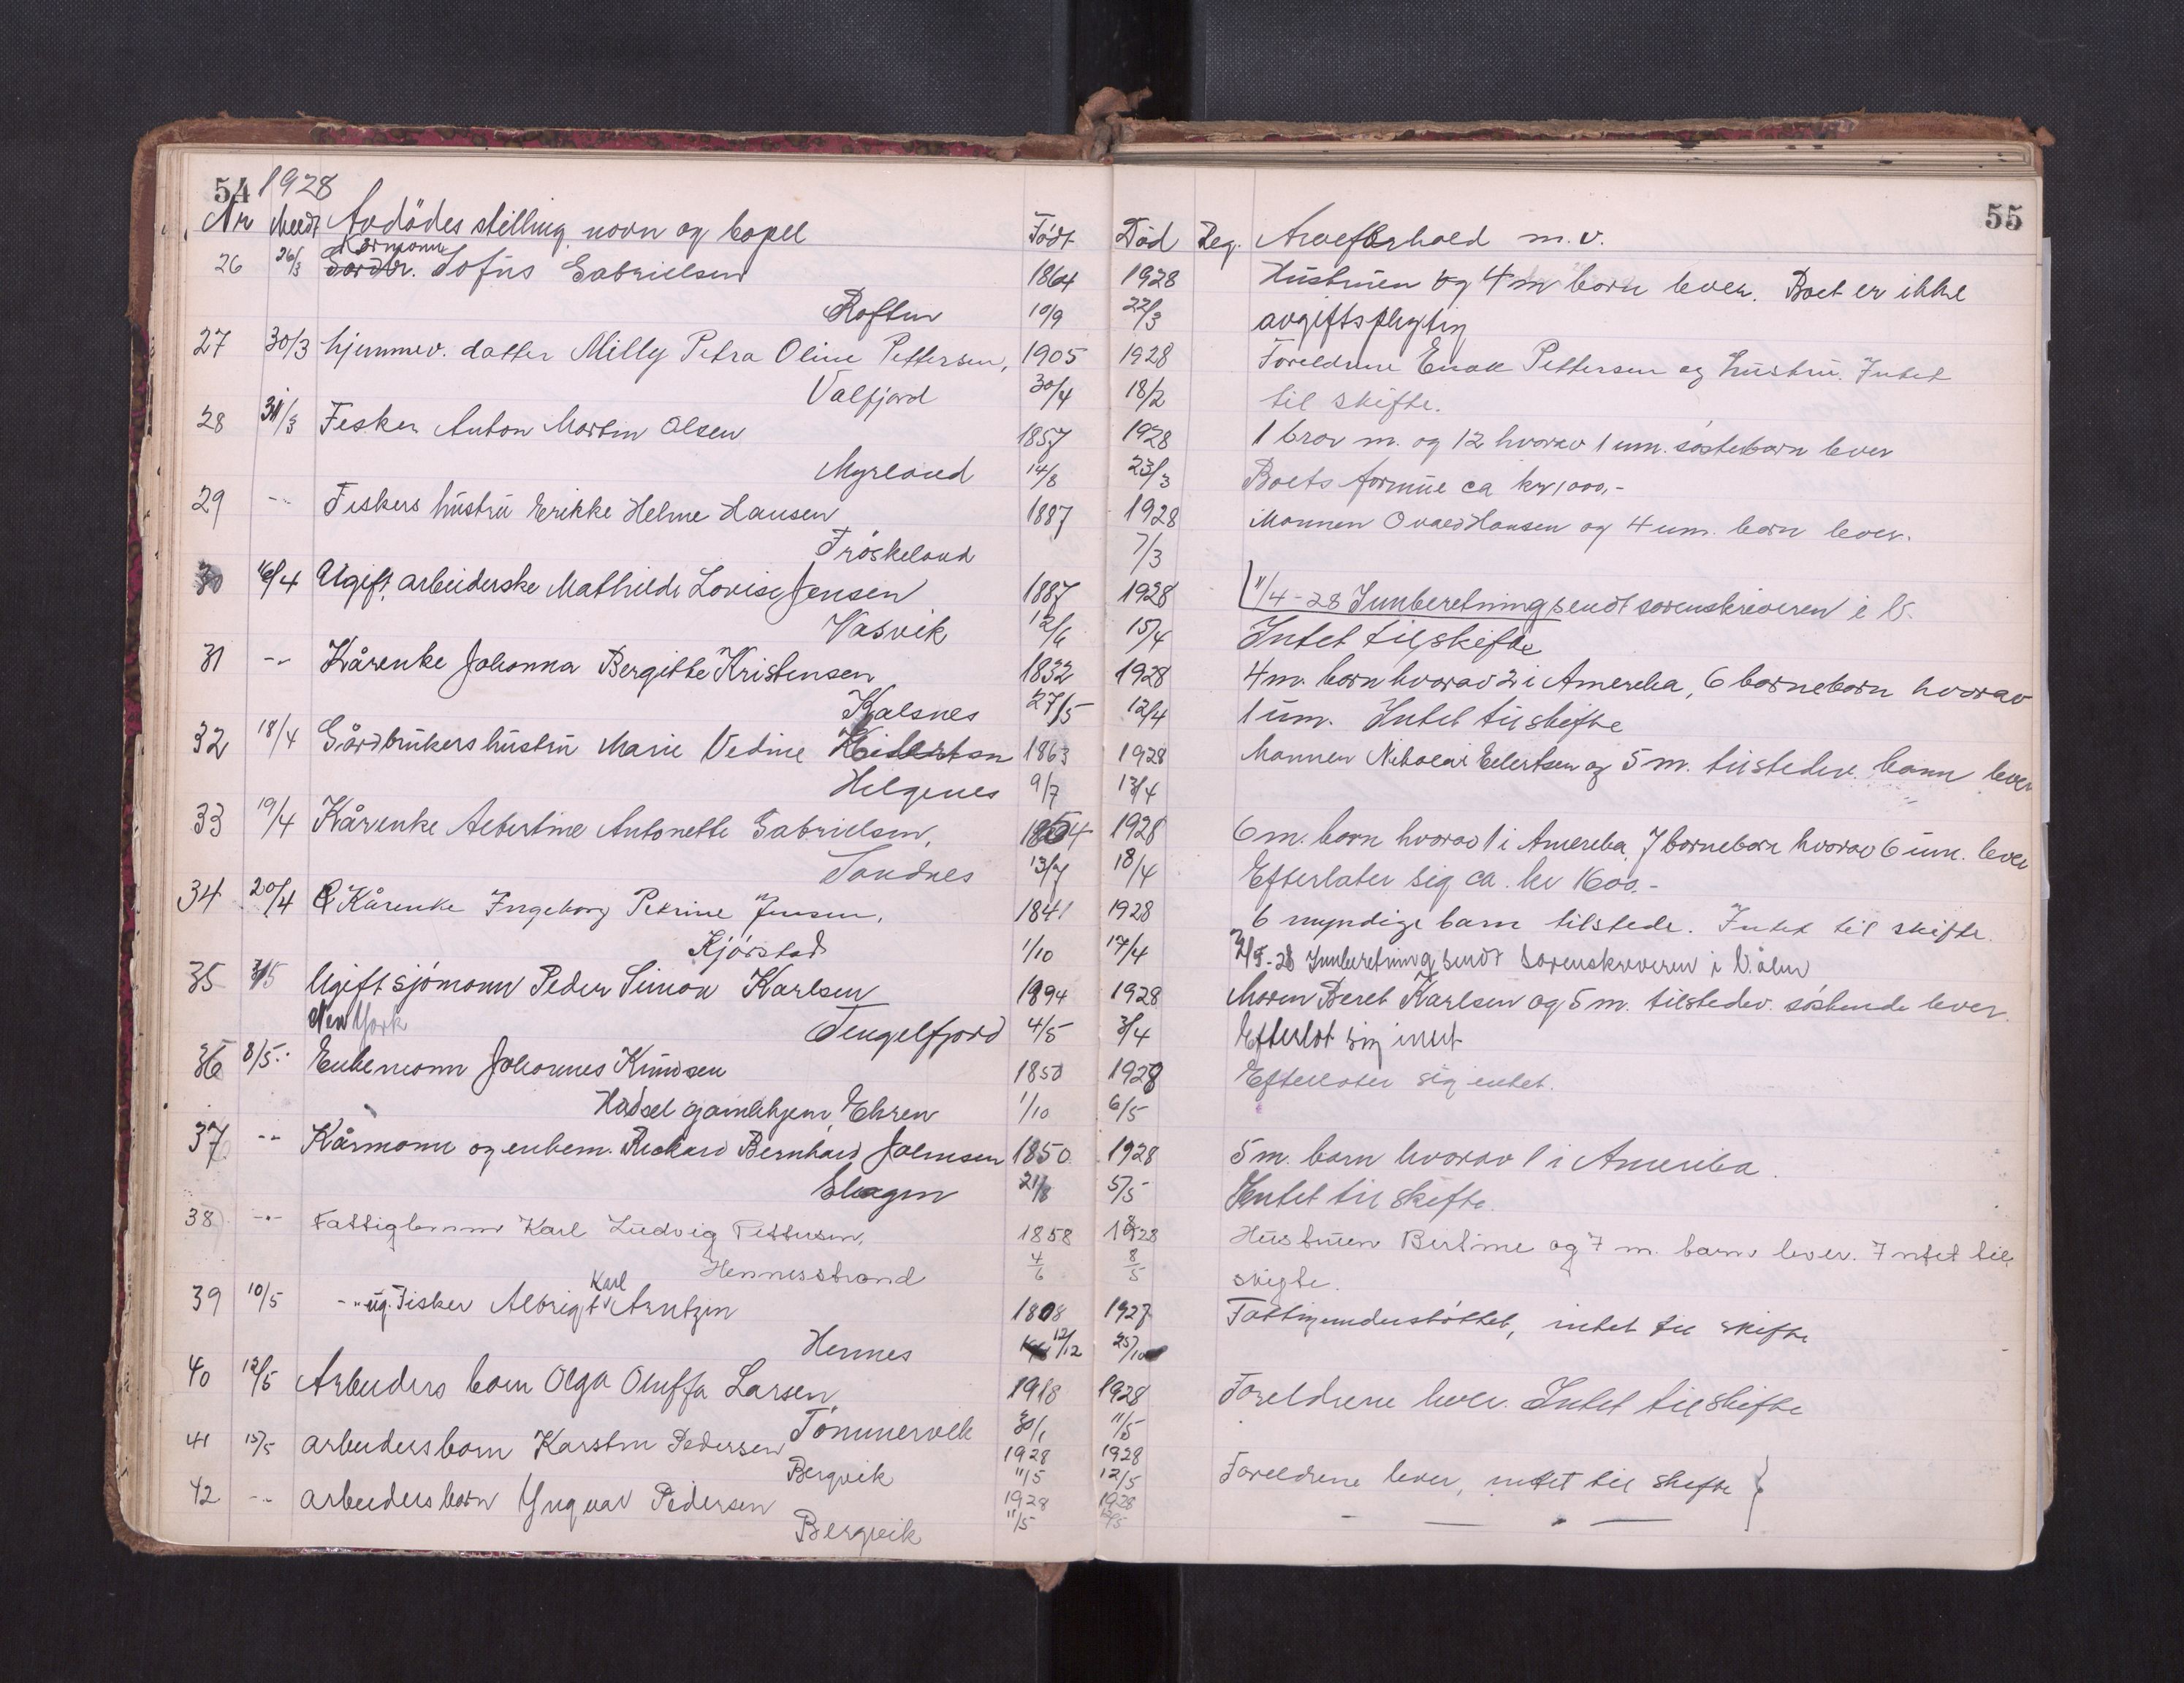 54 1928
55
Nr Meldt Avdödes stilling navn og bopel Födt Död Reg. Arveforhold m.v.
Kårmann
26 26/3 Gårdbr. Sofus Gabrielsen 1864 1928 Hustruen og 4 m barn lever. Boet er ikke
Roften 10/9 22/3 avgiftspligtig
27 30/3 hjemmev. datter Milly Petra Oline Pettersen, 1905 1928 Foreldrene Enok Pettersen og hustru. Intet
Valfjord 30/4 18/2 til skifte.
28 31/3 Fisker Anton Martin Olsen 1857 1928 1 bror m. og 12 hvorav 1 um. søstebarn lever
Myrland 14/8 23/3 Boets formue ca kr 1000,-
29 -"- Fiskers hustru Erikke Helme Hansen 1887 1928 Mannen Ovald Hansen og 4 um. barn lever.
Fröskeland 7/3
30 16/4 Ugift arbeiderske Mathilde Lovise Jensen 1887 1928 11/4-28 Innberetning sendt sorenskriveren i V.
Vasvik 12/6 15/4 Intet til skifte
31 -"- Kårenke Johanna Bergitte Kristensen 1832 1928 4 m. barn hvorav 2 i Amerika, 6 barnebarn hvorav
Kalsnes 27/5 12/4 1 um. Intet til skifte
32 18/4 Gårdbrukers hustru Marie Vedine Eilertsen 1863 1928 Mannen Nikolai Eilertsen og 5 m. tilstedev. barn lever
Helgenes 9/7 13/4
33 19/4 Kårenke Albertine Antonette Gabrielsen, 1854 1928 6 m. barn hvorav 1 i Amerika, 7 barnebarn hvorav 6 um. lever
Sandnes 13/7 18/4 Efterlater sig ca. kr 1600.-
34 20/4 Kårenke Ingeborg Petrine Jensen, 1841 1928 6 myndige barn tilstede. Intet til skifte.
Kjörstad 1/10 17/4 2/5-28 Innberetning sendt Sorenskriveren i Vålen
35 3/5 Ugift sjömann Peder Simon Karlsen 1894 1928 Moren Beret Karlsen og 5 m. tilstedev. söskende lever.
New York Tengelfjord 4/5 3/4 Efterlot sig intet
36 8/5 Enkemann Johannes Knudsen 1850 1928 Efterlater sig intet.
Hadsel gamlehjem, Ekren 1/10 6/5
37 -"- Kårmann og enkem. Rickard Bernhard Johnsen 1850 1928 5 m. barn hvorav 1 i Amerika.
Skagen 21/8 5/5 Intet til skifte.
38 -"- Fattiglemm Karl Ludvig Pettersen, 1858 1928 Hustruen Bertine og 7 m. barn lever. Intet til
Hennesstrand 4/6 8/5 skifte.
Karl
39 10/5 -"- ug. Fisker Albrigt Arntzen 1808 1927 Fattigunderstöttet, intet til skifte
Hennes 12/12 25/10
40 12/5 Arbeiders barn Olga Oluffa Larsen, 1918 1928 Foreldrene lever. Intet til skifte
Tömmervik 30/1 11/5
41 15/5 arbeiders barn Karsten Pedersen 1928 1928
Bergvik 11/5 12/5 Foreldrene lever, intet til skifte }
42 -"- arbeiders barn Yngvar Pedersen 1928 1928
Bergvik 11/5 12/5 - — " —